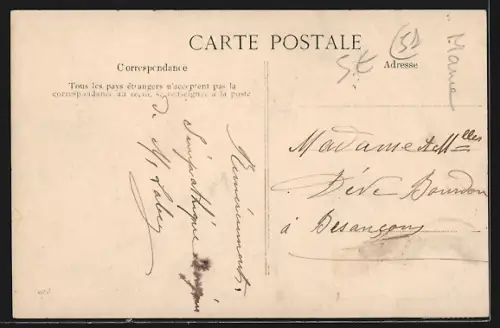 CARTE POSTALE
Correspondance
Tous les pays étrangers n'acceptent pas la
correspondance au recto, se renseigner à la poste
Adresse
Marne
Remerciements,
Sympathique
de M,
Madame & Mlles
Bourdon
à Besançon